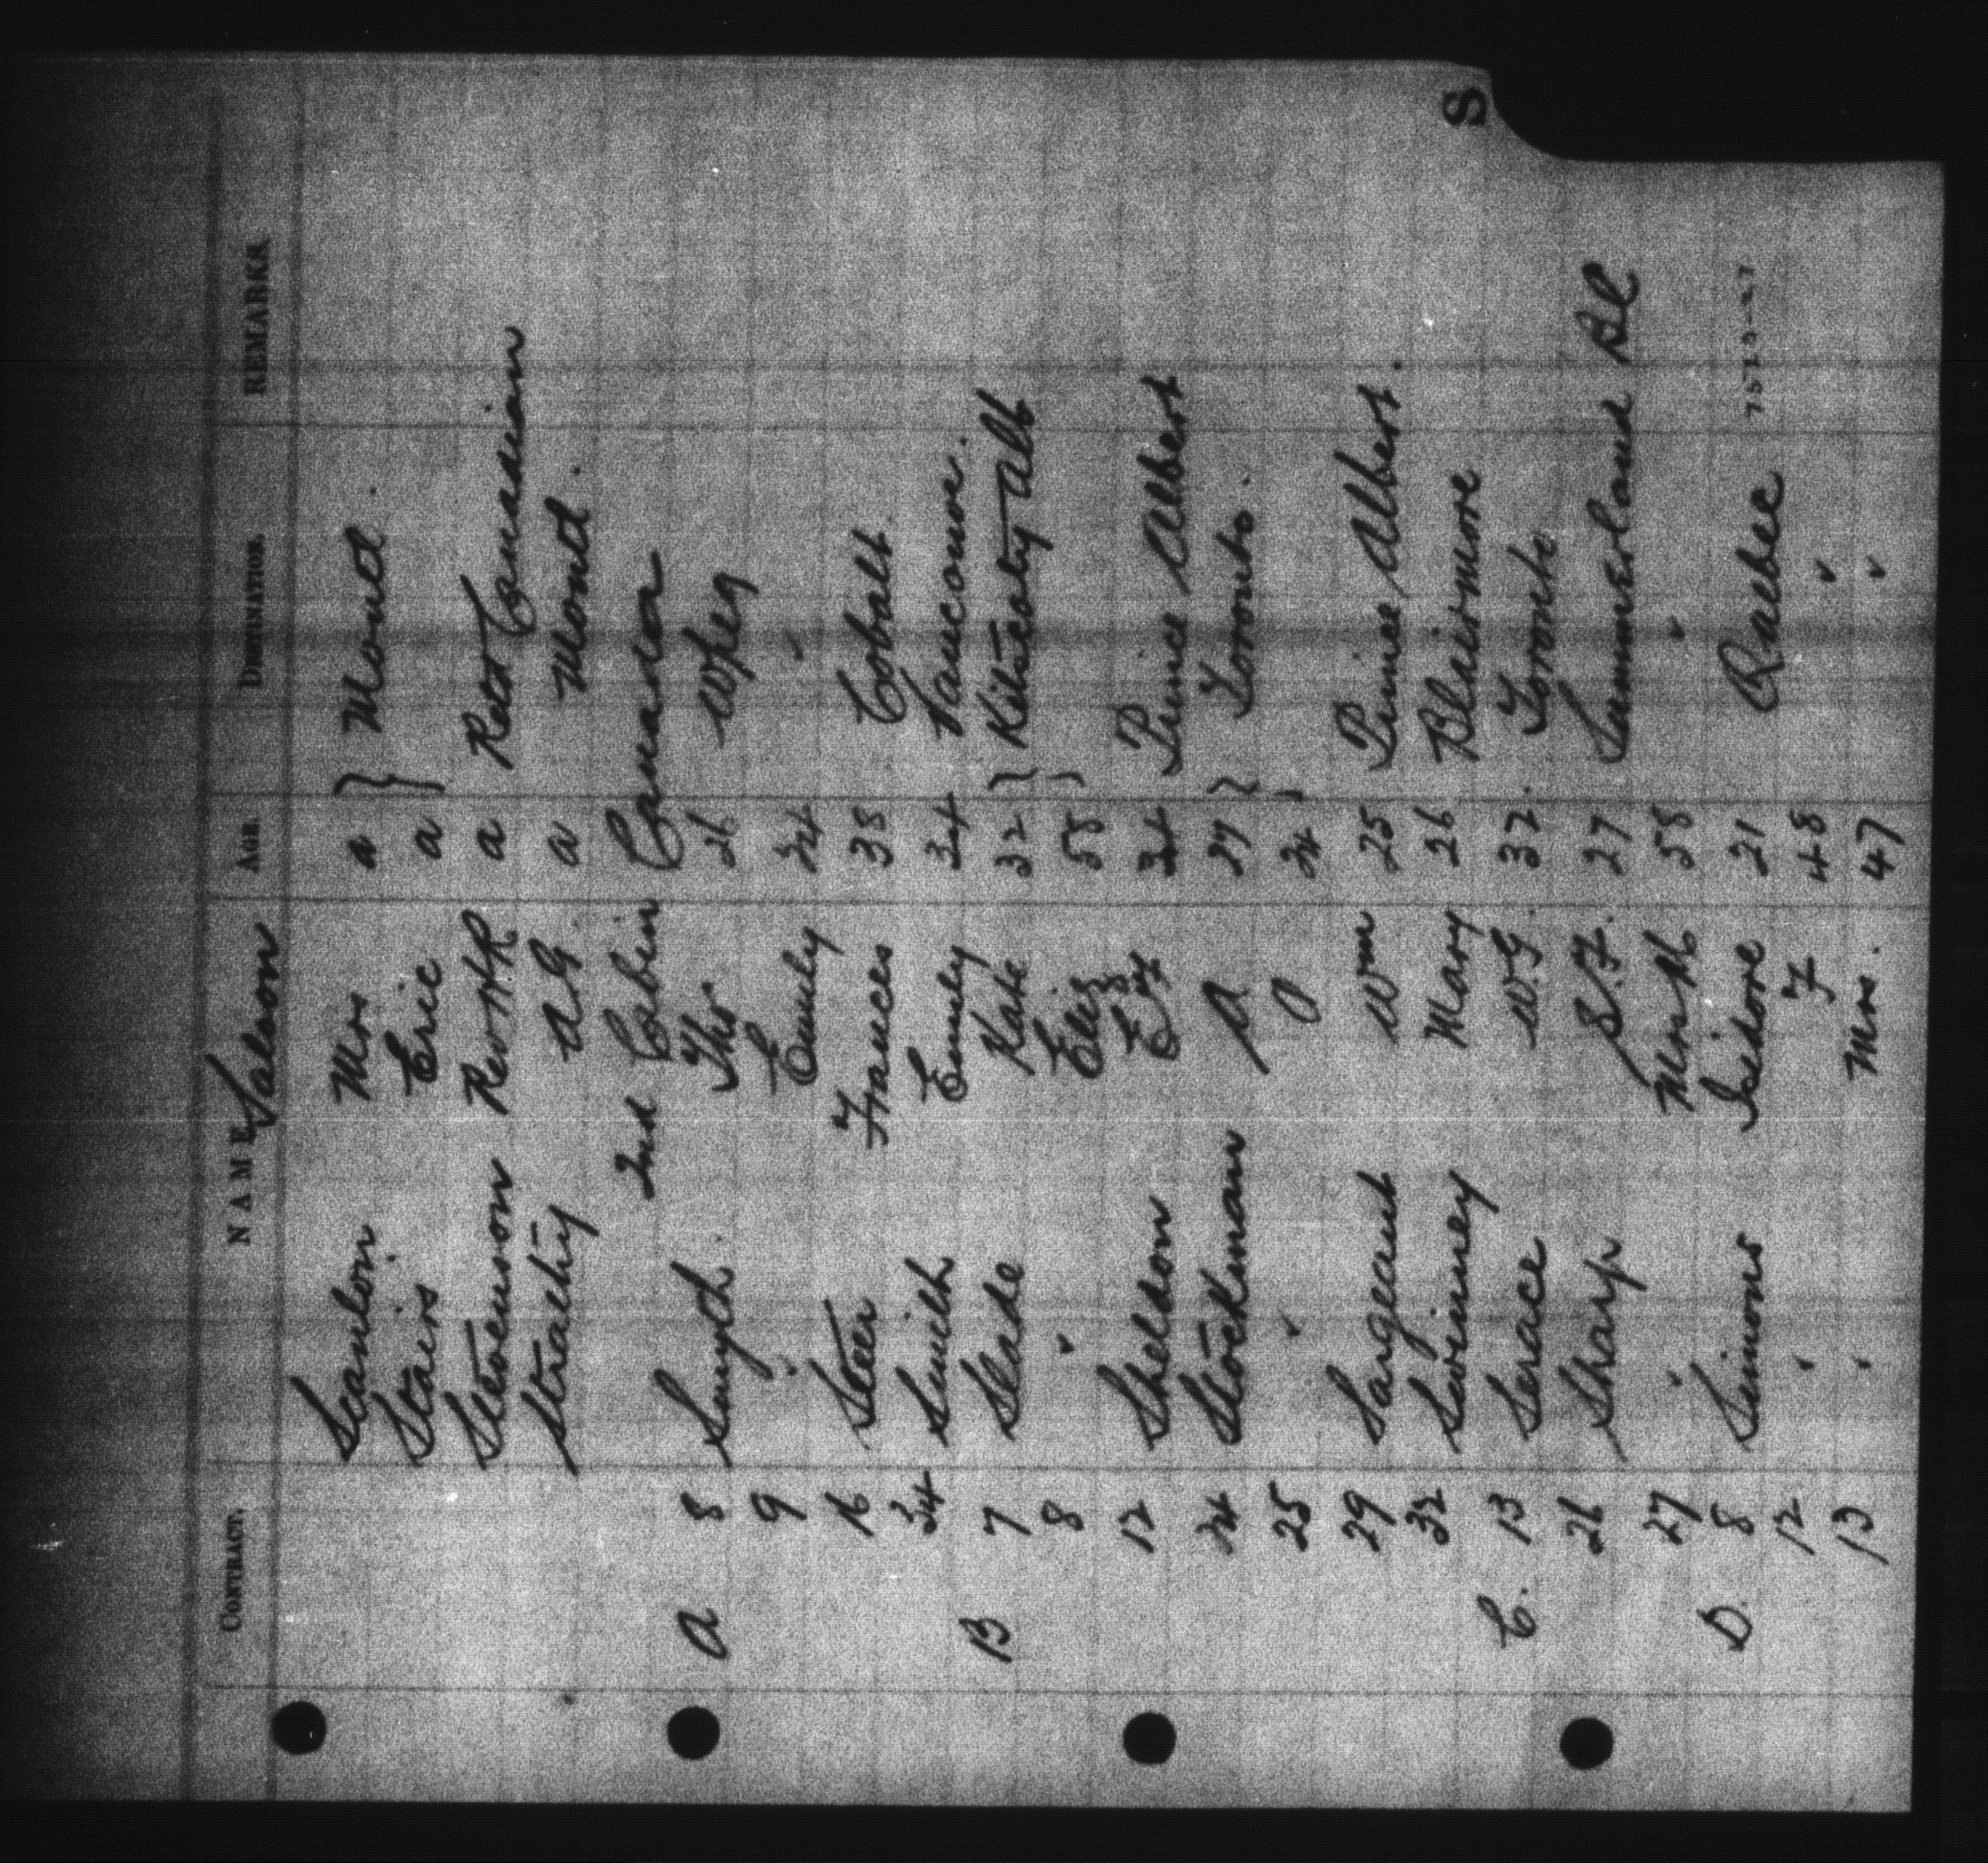 S
CONTRACT. NAME AGE. DESTINATION. REMARKS.
Saloon
Scanlon Mrs a } Montl.
Stairs Eric a
Stevenson Rev H.R a Retd Canadian
Strathy A G. a Montl.
2nd Cabin Canada
A 8 Smyth Tho. 26 Wpeg
9 " Emily 24 "
16 Steer Frances 38 Cobalt
34 Smith Emily 34 Vancouver.
B 7 Slade Kate 32 } Kitscoty Alb
8 " Eliz 58
12 Sheldon 34 Prince Albert
24 Stockman A 27 } Toronto.
25 " O 24
29 Sargeant Wm 25 Prince Albert.
32 Swinney Mary 26 Blairmore
C. 13 Serace W.G. 32. Toronto
26 Sharp S.F. 27 Summerland BC
27 " Mrs M 58 "
D. 8 Simons Isidore 21 Quebec
12 " F 48 "
13 " Mrs. 47 "